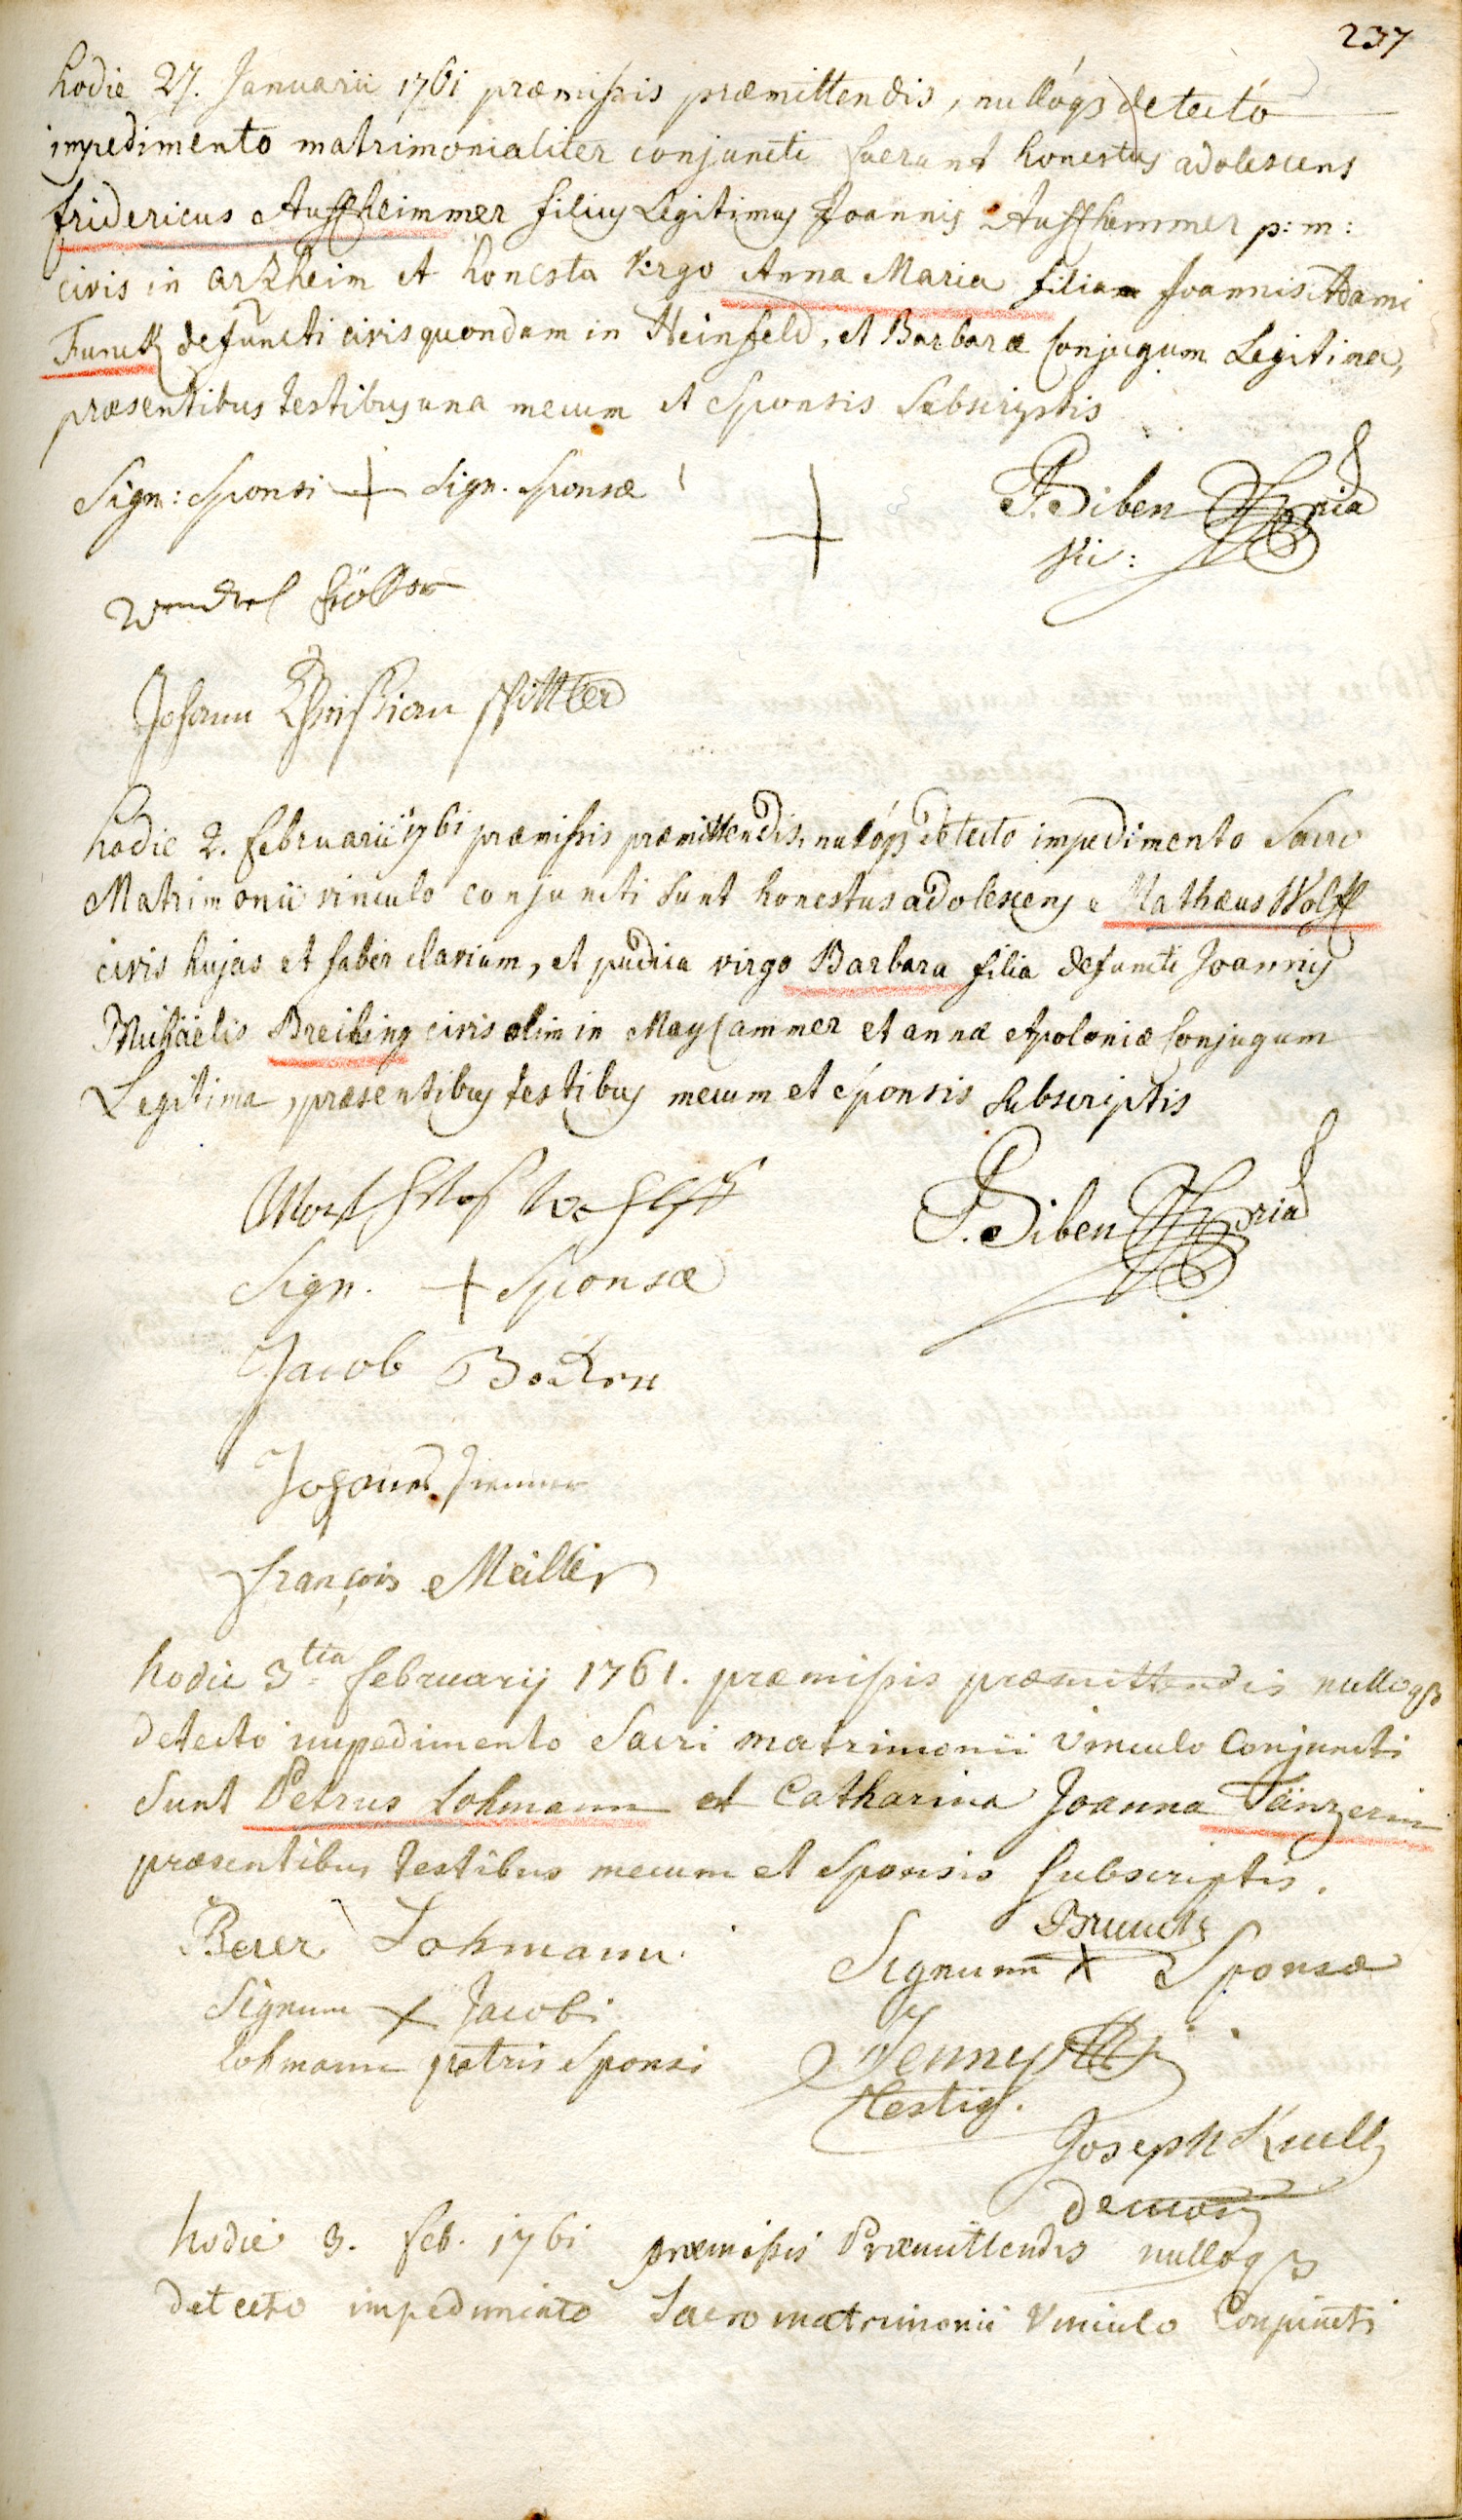 237
hodie 27. Januarii 1761 præmissis præmittendis, nullóq3 detectó
impedimento matrimonialiter conjuncti fuerunt honestus adolescens
fridericus Auffheimmer filius Legitimus Joannis Auffhemmer p: m:
civis in arzheim et honesta virgo Anna Maria filia Joannis Adami
Funck defuncti civis quondam in Heinfeld, et Barbaræ Conjugum Legitima,
præsentibus testibus una mecum et Sponsis Subscriptis
Sign: Sponsi + Sign. Sponsæ + P. Siben
Vic:
Johann Christian Spittler
hodie 2. februarii 1761 præmissis præmittendis, nullóq3 detecto impedimento Sacro
Matrimonii vinculo conjuncti sunt honestus adolescens Mathæus Wolff
civis hujas et faber clavium, et pudica virgo Barbara filia defuncti Joannis
Michäelis Breiling civis olim in Maycammer et annæ Apoloniæ Conjugum
Legitima, præsentibus testibus mecum et sponsis subscriptis
P. Siben
Sign. + Sponsæ
Jacob
françois Meiller
hodie 3tia februarij 1761. præmissis præmittendis nulloq3
detecto impedimento Sacri matrimonii Vinculo Conjuncti
Sunt Petrus Lohmann et Catharina Joanna Tänzerin
præsentibus testibus mecum et Sponsis Subscriptis.
Lohmann. Signum x Sponsæ
Signum x Jacobi
Lohmann patris Sponsi
Jenny
testis.
Joseph
hodie 3. feb. 1761 præmissis Præmittendis nulloq3
detecto impedimento Sacro matrimonii Vinculo Conjuncti